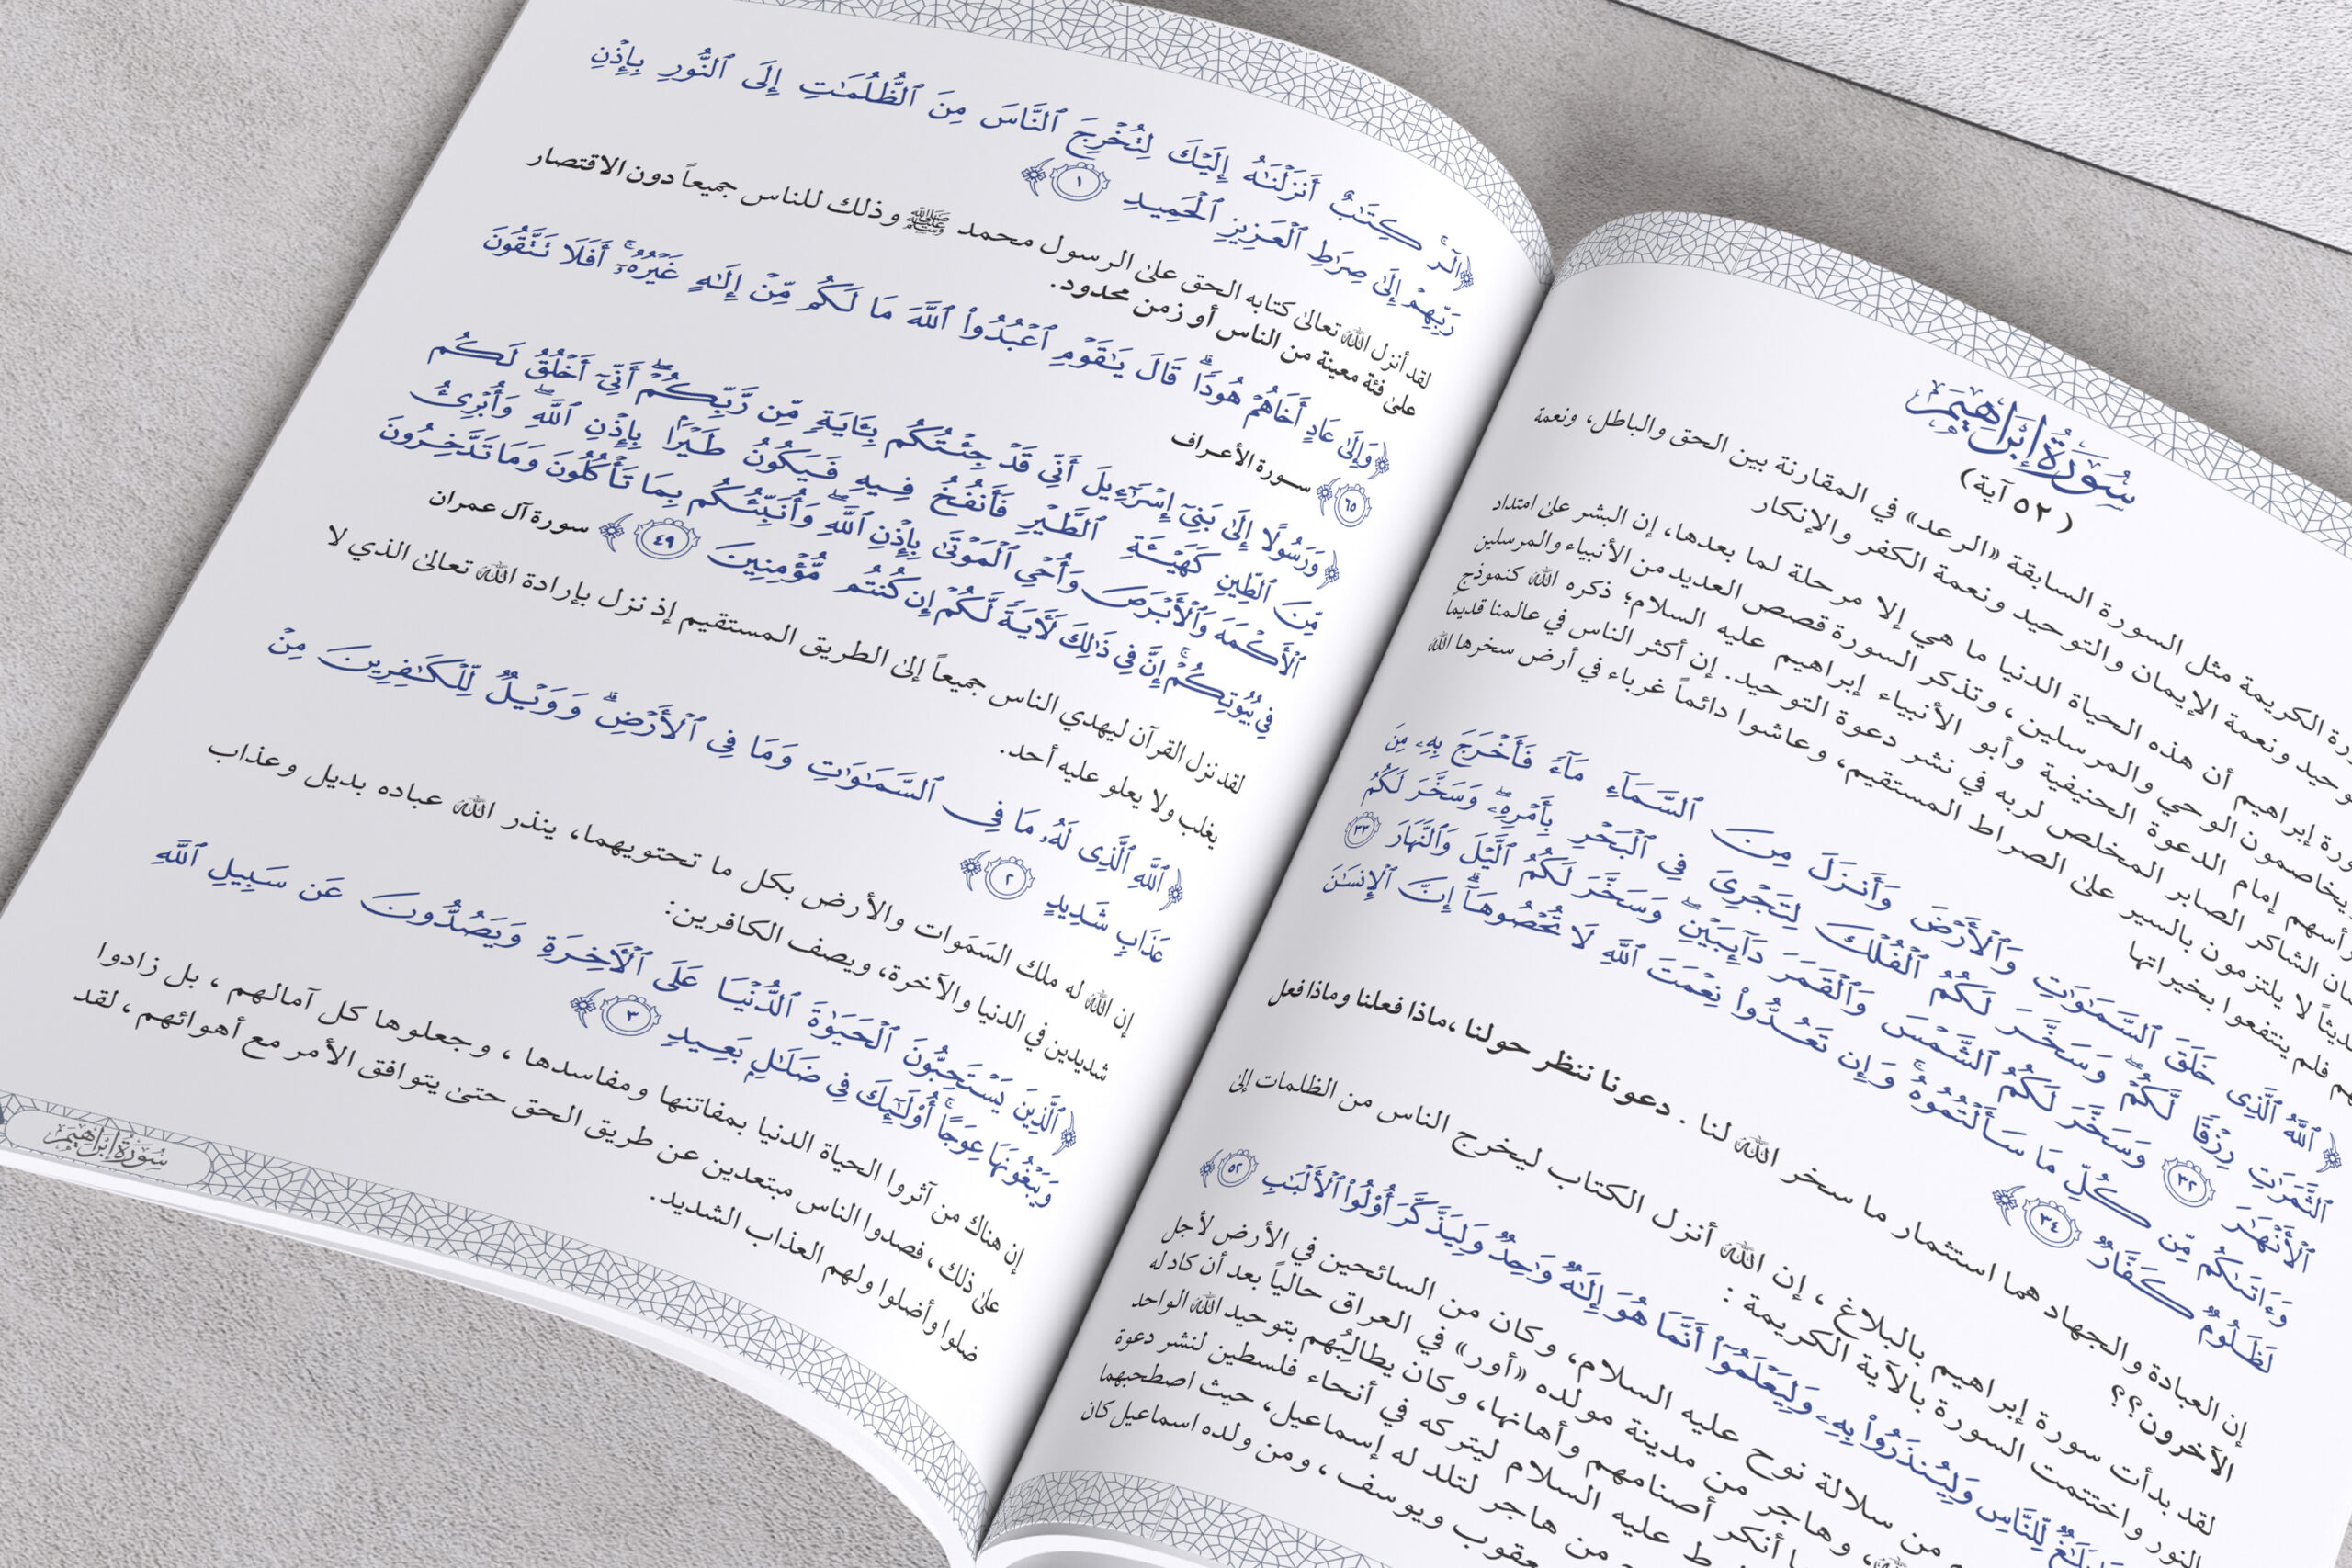 سُورَةُ إِبْرَاهِيمَ
(٥٢ آية)
الكريمة مثل السورة السابقة «الرعد» في المقارنة بين الحق والباطل، ونعمة
ونعمة الإيمان والتوحيد ونعمة الكفر والإنكار
إبراهيم أن هذه الحياة الدنيا ما هي إلا مرحلة لما بعدها، إن البشر على امتداد
يخاصمون الوحي والمرسلين، وتذكر السورة قصص العديد من الأنبياء والمرسلين
إمام الدعوة الحنيفية وأبو الأنبياء إبراهيم عليه السلام؛ ذكره الله كنموذج
الشاكر الصابر المخلص لربه في نشر دعوة التوحيد. إن أكثر الناس في عالمنا قديماً
لا يلتزمون بالسير على الصراط المستقيم، وعاشوا دائماً غرباء في أرض سخرها الله
فلم ينتفعوا بخيراتها
﴿ٱللَّهُ ٱلَّذِى خَلَقَ ٱلسَّمَٰوَٰتِ وَٱلْأَرْضَ وَأَنزَلَ مِنَ ٱلسَّمَآءِ مَآءً فَأَخْرَجَ بِهِۦ مِنَ
ٱلثَّمَرَٰتِ رِزْقًا لَّكُمْ ۖ وَسَخَّرَ لَكُمُ ٱلْفُلْكَ لِتَجْرِىَ فِى ٱلْبَحْرِ بِأَمْرِهِۦ ۖ وَسَخَّرَ لَكُمُ
ٱلْأَنْهَٰرَ ٣٢ وَسَخَّرَ لَكُمُ ٱلشَّمْسَ وَٱلْقَمَرَ دَآئِبَيْنِ ۖ وَسَخَّرَ لَكُمُ ٱلَّيْلَ وَٱلنَّهَارَ ٣٣
وَءَاتَىٰكُم مِّن كُلِّ مَا سَأَلْتُمُوهُ ۚ وَإِن تَعُدُّوا۟ نِعْمَتَ ٱللَّهِ لَا تُحْصُوهَآ ۗ إِنَّ ٱلْإِنسَٰنَ
لَظَلُومٌ كَفَّارٌ ٣٤﴾
إن العبادة والجهاد هما استثمار ما سخر الله لنا . دعونا ننظر حولنا ،ماذا فعلنا وماذا فعل
الآخرون؟؟
لقد بدأت سورة إبراهيم بالبلاغ ، إن الله أنزل الكتاب ليخرج الناس من الظلمات إلى
النور واختتمت السورة بالآية الكريمة :
لِّلنَّاسِ وَلِيُنذَرُوا۟ بِهِۦ وَلِيَعْلَمُوٓا۟ أَنَّمَا هُوَ إِلَٰهٌ وَٰحِدٌ وَلِيَذَّكَّرَ أُو۟لُوا۟ ٱلْأَلْبَٰبِ ٥٢﴾
من سلالة نوح عليه السلام، وكان من السائحين في الأرض لأجل
وهاجر من مدينة مولده «أور» في العراق حالياً بعد أن كاد له
أنكر أصنامهم وأهانها، وكان يطالبُهم بتوحيد الله الواحد
عليه السلام ليتركه في أنحاء فلسطين لنشر دعوة
من هاجر لتلد له إسماعيل، حيث اصطحبهما
ويوسف ، ومن ولده اسماعيل كان
﴿الٓر ۚ كِتَٰبٌ أَنزَلْنَٰهُ إِلَيْكَ لِتُخْرِجَ ٱلنَّاسَ مِنَ ٱلظُّلُمَٰتِ إِلَى ٱلنُّورِ بِإِذْنِ
رَبِّهِمْ إِلَىٰ صِرَٰطِ ٱلْعَزِيزِ ٱلْحَمِيدِ ١﴾
لقد أنزل الله تعالى كتابه الحق على الرسول محمد ﷺ وذلك للناس جميعاً دون الاقتصار
على فئة معينة من الناس أو زمن محدود.
﴿وَإِلَىٰ عَادٍ أَخَاهُمْ هُودًا ۗ قَالَ يَٰقَوْمِ ٱعْبُدُوا۟ ٱللَّهَ مَا لَكُم مِّنْ إِلَٰهٍ غَيْرُهُۥٓ ۚ أَفَلَا تَتَّقُونَ
٦٥﴾ سورة الأعراف
﴿وَرَسُولًا إِلَىٰ بَنِىٓ إِسْرَٰٓءِيلَ أَنِّى قَدْ جِئْتُكُم بِـَٔايَةٍ مِّن رَّبِّكُمْ ۖ أَنِّىٓ أَخْلُقُ لَكُم
مِّنَ ٱلطِّينِ كَهَيْـَٔةِ ٱلطَّيْرِ فَأَنفُخُ فِيهِ فَيَكُونُ طَيْرًۢا بِإِذْنِ ٱللَّهِ ۖ وَأُبْرِئُ
ٱلْأَكْمَهَ وَٱلْأَبْرَصَ وَأُحْىِ ٱلْمَوْتَىٰ بِإِذْنِ ٱللَّهِ ۖ وَأُنَبِّئُكُم بِمَا تَأْكُلُونَ وَمَا تَدَّخِرُونَ
فِى بُيُوتِكُمْ ۚ إِنَّ فِى ذَٰلِكَ لَـَٔايَةً لَّكُمْ إِن كُنتُم مُّؤْمِنِينَ ٤٩﴾ سورة آل عمران
لقد نزل القرآن ليهدي الناس جميعاً إلى الطريق المستقيم إذ نزل بإرادة الله تعالى الذي لا
يغلب ولا يعلو عليه أحد.
﴿ٱللَّهِ ٱلَّذِى لَهُۥ مَا فِى ٱلسَّمَٰوَٰتِ وَمَا فِى ٱلْأَرْضِ ۗ وَوَيْلٌ لِّلْكَٰفِرِينَ مِنْ
عَذَابٍ شَدِيدٍ ٢﴾
إن الله له ملك السَمَوات والأرض بكل ما تحتويهما، ينذر الله عباده بديل وعذاب
شديدين في الدنيا والآخرة، ويصف الكافرين:
﴿ٱلَّذِينَ يَسْتَحِبُّونَ ٱلْحَيَوٰةَ ٱلدُّنْيَا عَلَى ٱلْـَٔاخِرَةِ وَيَصُدُّونَ عَن سَبِيلِ ٱللَّهِ
وَيَبْغُونَهَا عِوَجًا ۚ أُو۟لَٰٓئِكَ فِى ضَلَٰلٍۭ بَعِيدٍ ٣﴾
إن هناك من آثروا الحياة الدنيا بمفاتنها ومفاسدها ، وجعلوها كل آمالهم ، بل زادوا
على ذلك ، فصدوا الناس مبتعدين عن طريق الحق حتى يتوافق الأمر مع أهوائهم ، لقد
ضلوا وأضلوا ولهم العذاب الشديد.
سُورَةُ إِبْرَاهِيمَ